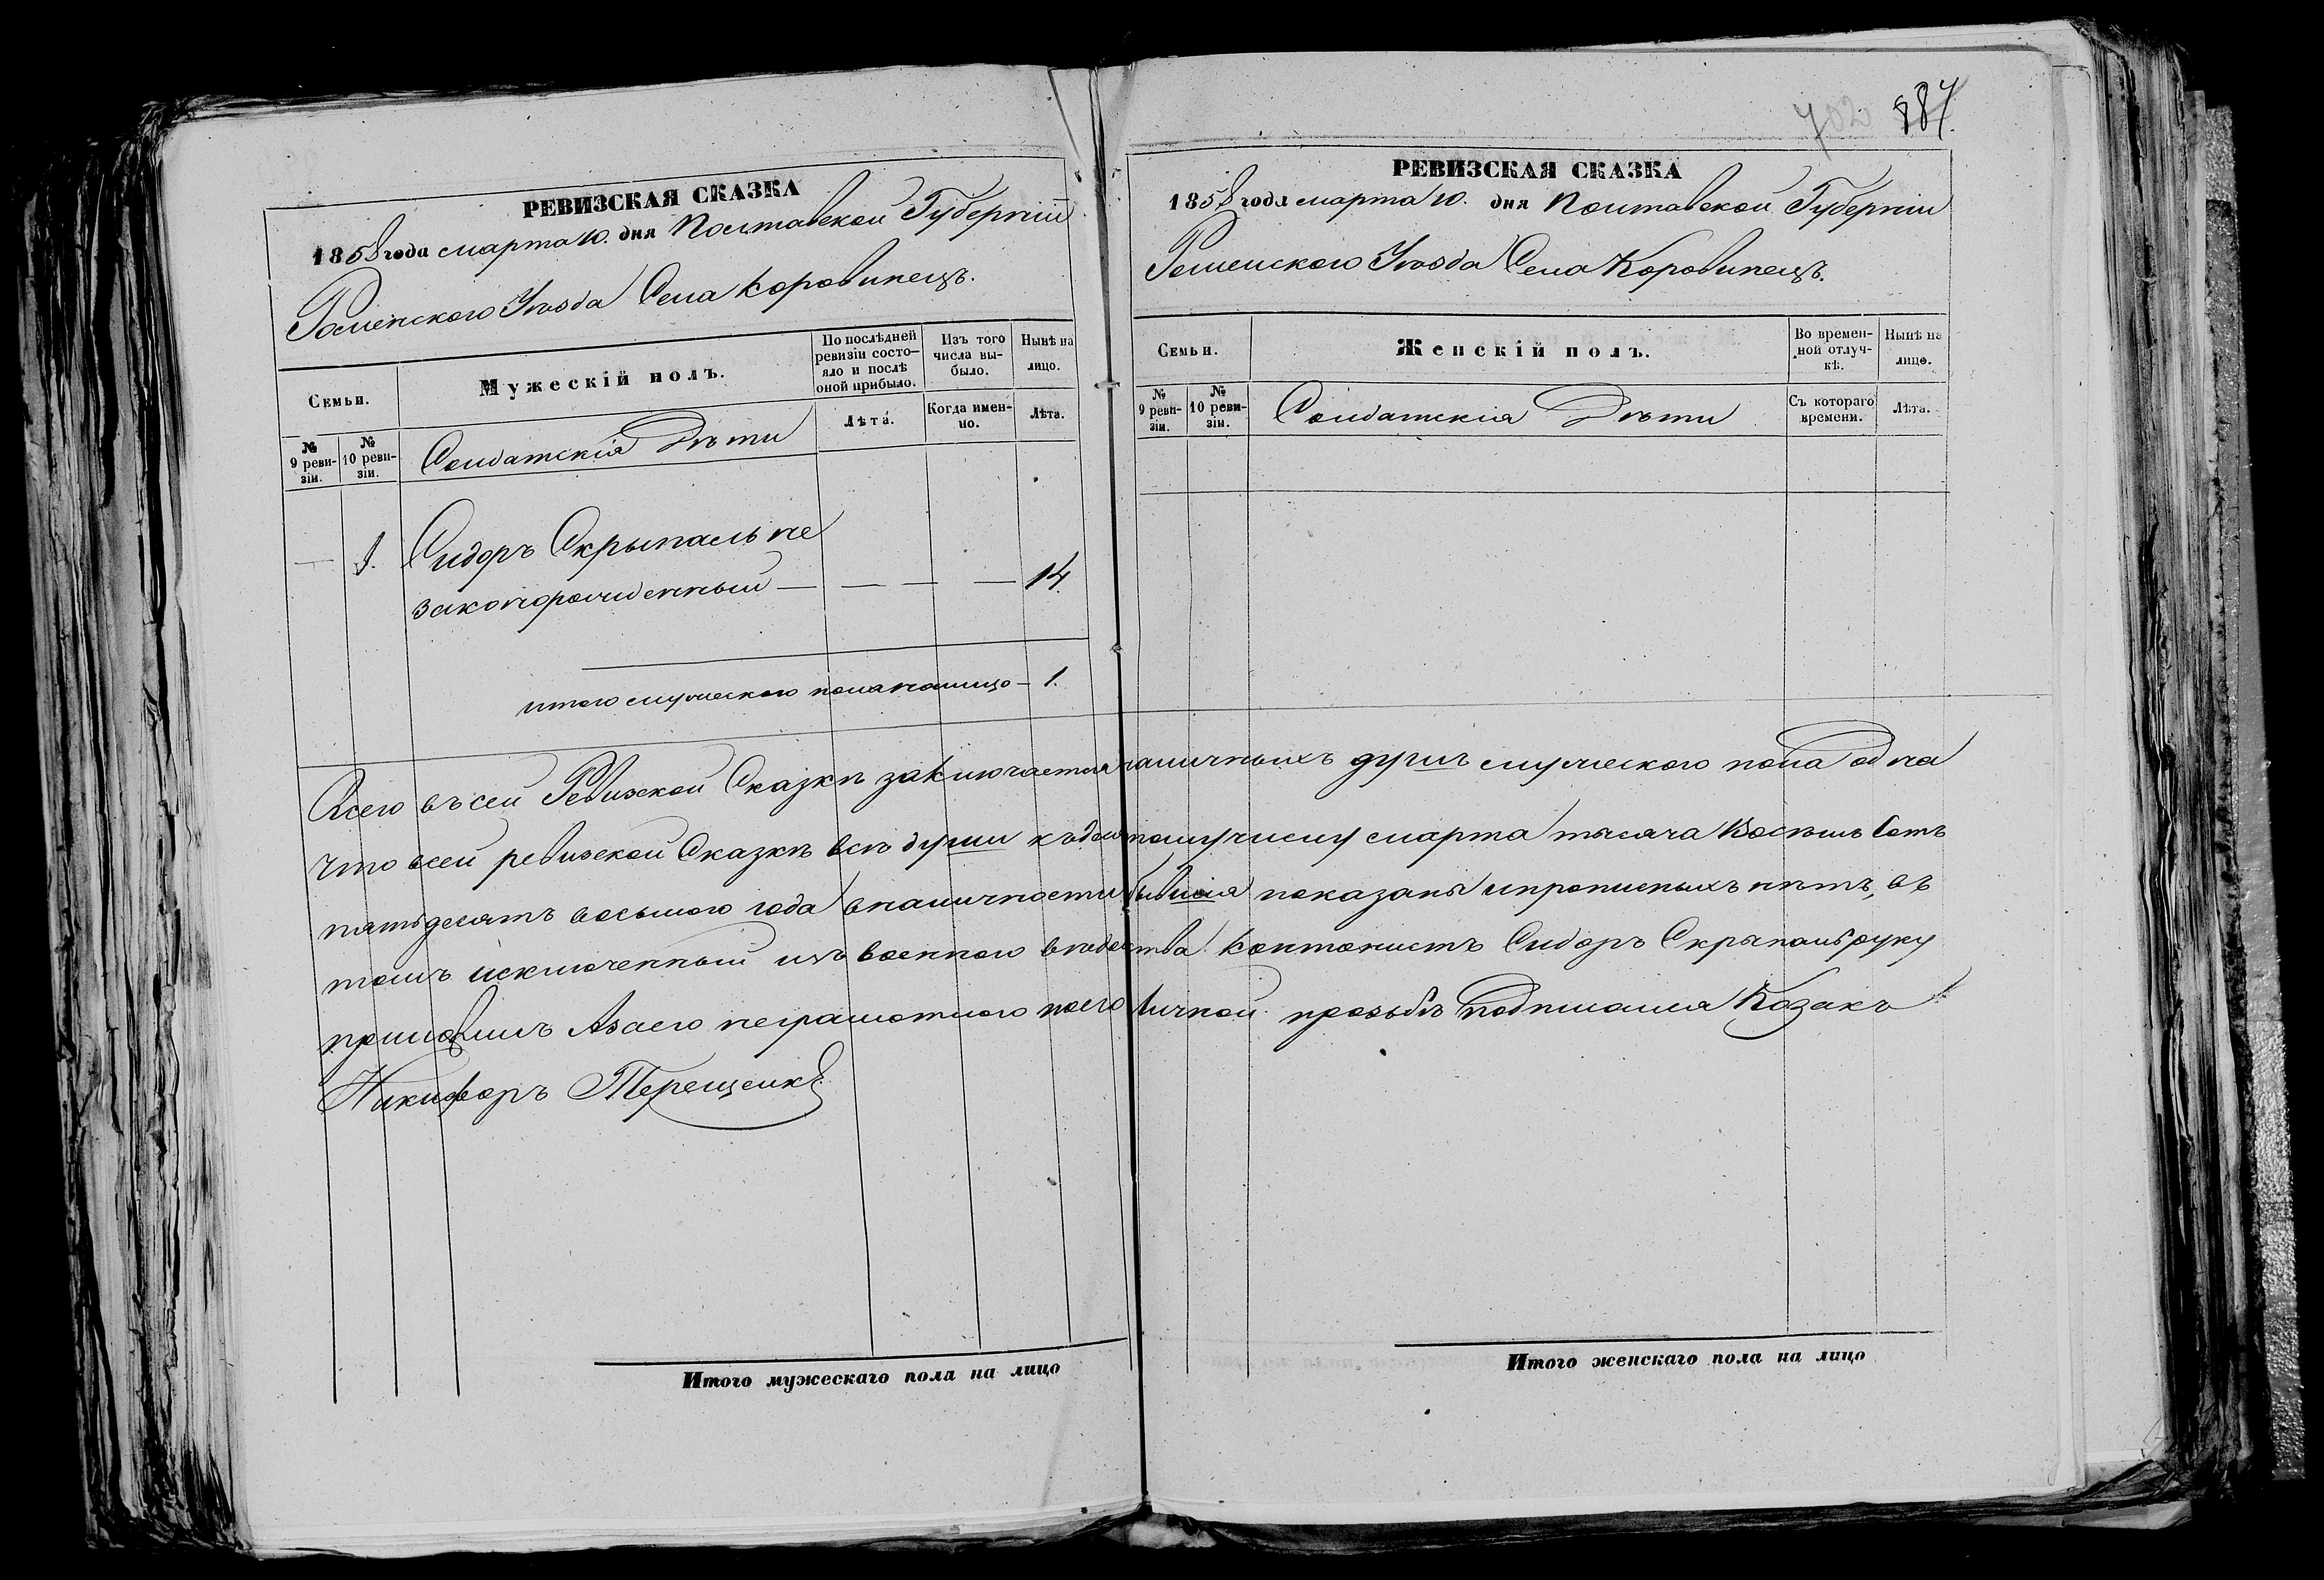 РЕВИЗСКАЯ СКАЗКА
1858 года марта 10. дня Полтавской Губерніи
Роменского Уѣзда Села Коровинецъ.
Семьи.
Мужескій полъ.
По послѣдней ревизіи состояло и послѣ оной прибыло.
Изъ того числа выбыло.
Нынѣ на лицо.
№ 9 ревизіи.
№ 10 ревизіи.
Солдатскія Дѣти
Лѣта.
Когда именно.
Лѣта.
— 1. Сидоръ Скрыпаль не
законорожденный — — — — 14.
итого мужеского пола на лицо — 1.
887.
РЕВИЗСКАЯ СКАЗКА
1858 года марта 10. дня Полтавской Губерніи
Роменского Уѣзда Села Коровинецъ.
Семьи.
Женскій полъ.
Во временной отлучкѣ.
Нынѣ на лицо.
№ 9 ревизіи.
№ 10 ревизіи.
Солдатскія Дѣти
Съ котораго времени.
Лѣта.
Всего въ сей Ревизской Сказкѣ заключается наличныхъ душъ мужеского пола одна
Что всей ревизской Сказкѣ всѣ души къ десятому числу марта тысяча Восемь Сотъ
пятьдесятъ восьмого года вналичности бывшія показаны и прописныхъ нѣтъ, въ
томъ исключенный изъ военного вѣдомства Кантонистъ Сидоръ Скрыпаль руку
приложилъ А за его неграмотного по его личной прозьбѣ Подписался Козакъ
Никифоръ Терещенко
Итого мужескаго пола на лицо
Итого женскаго пола на лицо